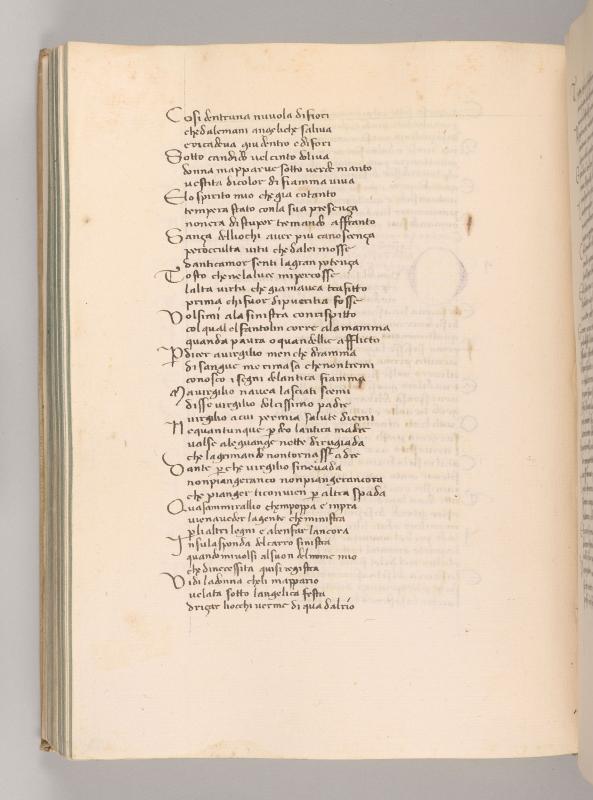 Cosi dentruna nuvola di fiori
che dalemani angeliche saliva
e ricadeva giu dentro e di fori
Sotto candido vel cinto doliva
donna mapparve sotto verde manto
vestita di color di fiamma viva
E lo spirito mio che gia cotanto
tempera stato con la sua presença
non era di stupor tremando affranto
Sança delluochi aver piu canoscença
per occulta vitu che da lei mosse
dantico amor senti la gran potença
Tosto che ne la luce mi percosse
lalta virtu che gia mavea trafitto
prima chi fuor di pueritia fosse
Volsimi a la sinistra con rispitto
col qual el fantolin corre a la mamma
quando a paura o quando elli e afflicto
P dicer a virgilio men che dramma
di sangue me rimaso che non tremi
conosco i segni de lantica fiamma
Ma virgilio navea lasciati scemi
di sse virgilio dolcissimo padre
virgilio a cui per mia salute diemi
Ne quantunque pdeo lantica madre
valse a le guançe nette di rugiada
che lagrimando non tornasser adre
Dante p che virgilio sine vada
non pianger anco non pianger ancora
che pianger ti convien p altra spada
Quasi ammiraglio chen poppa e in pra
viena veder la gente che ministra
p li altri legni e a ben far lancora
In su la sponda del carro sinistra
quando mi volsi al suon del nome mio
che di necessita qui si registra
Vidi la donna che li mappario
velata sotto langelica festa
driçar liocchi verme di qua dal rio